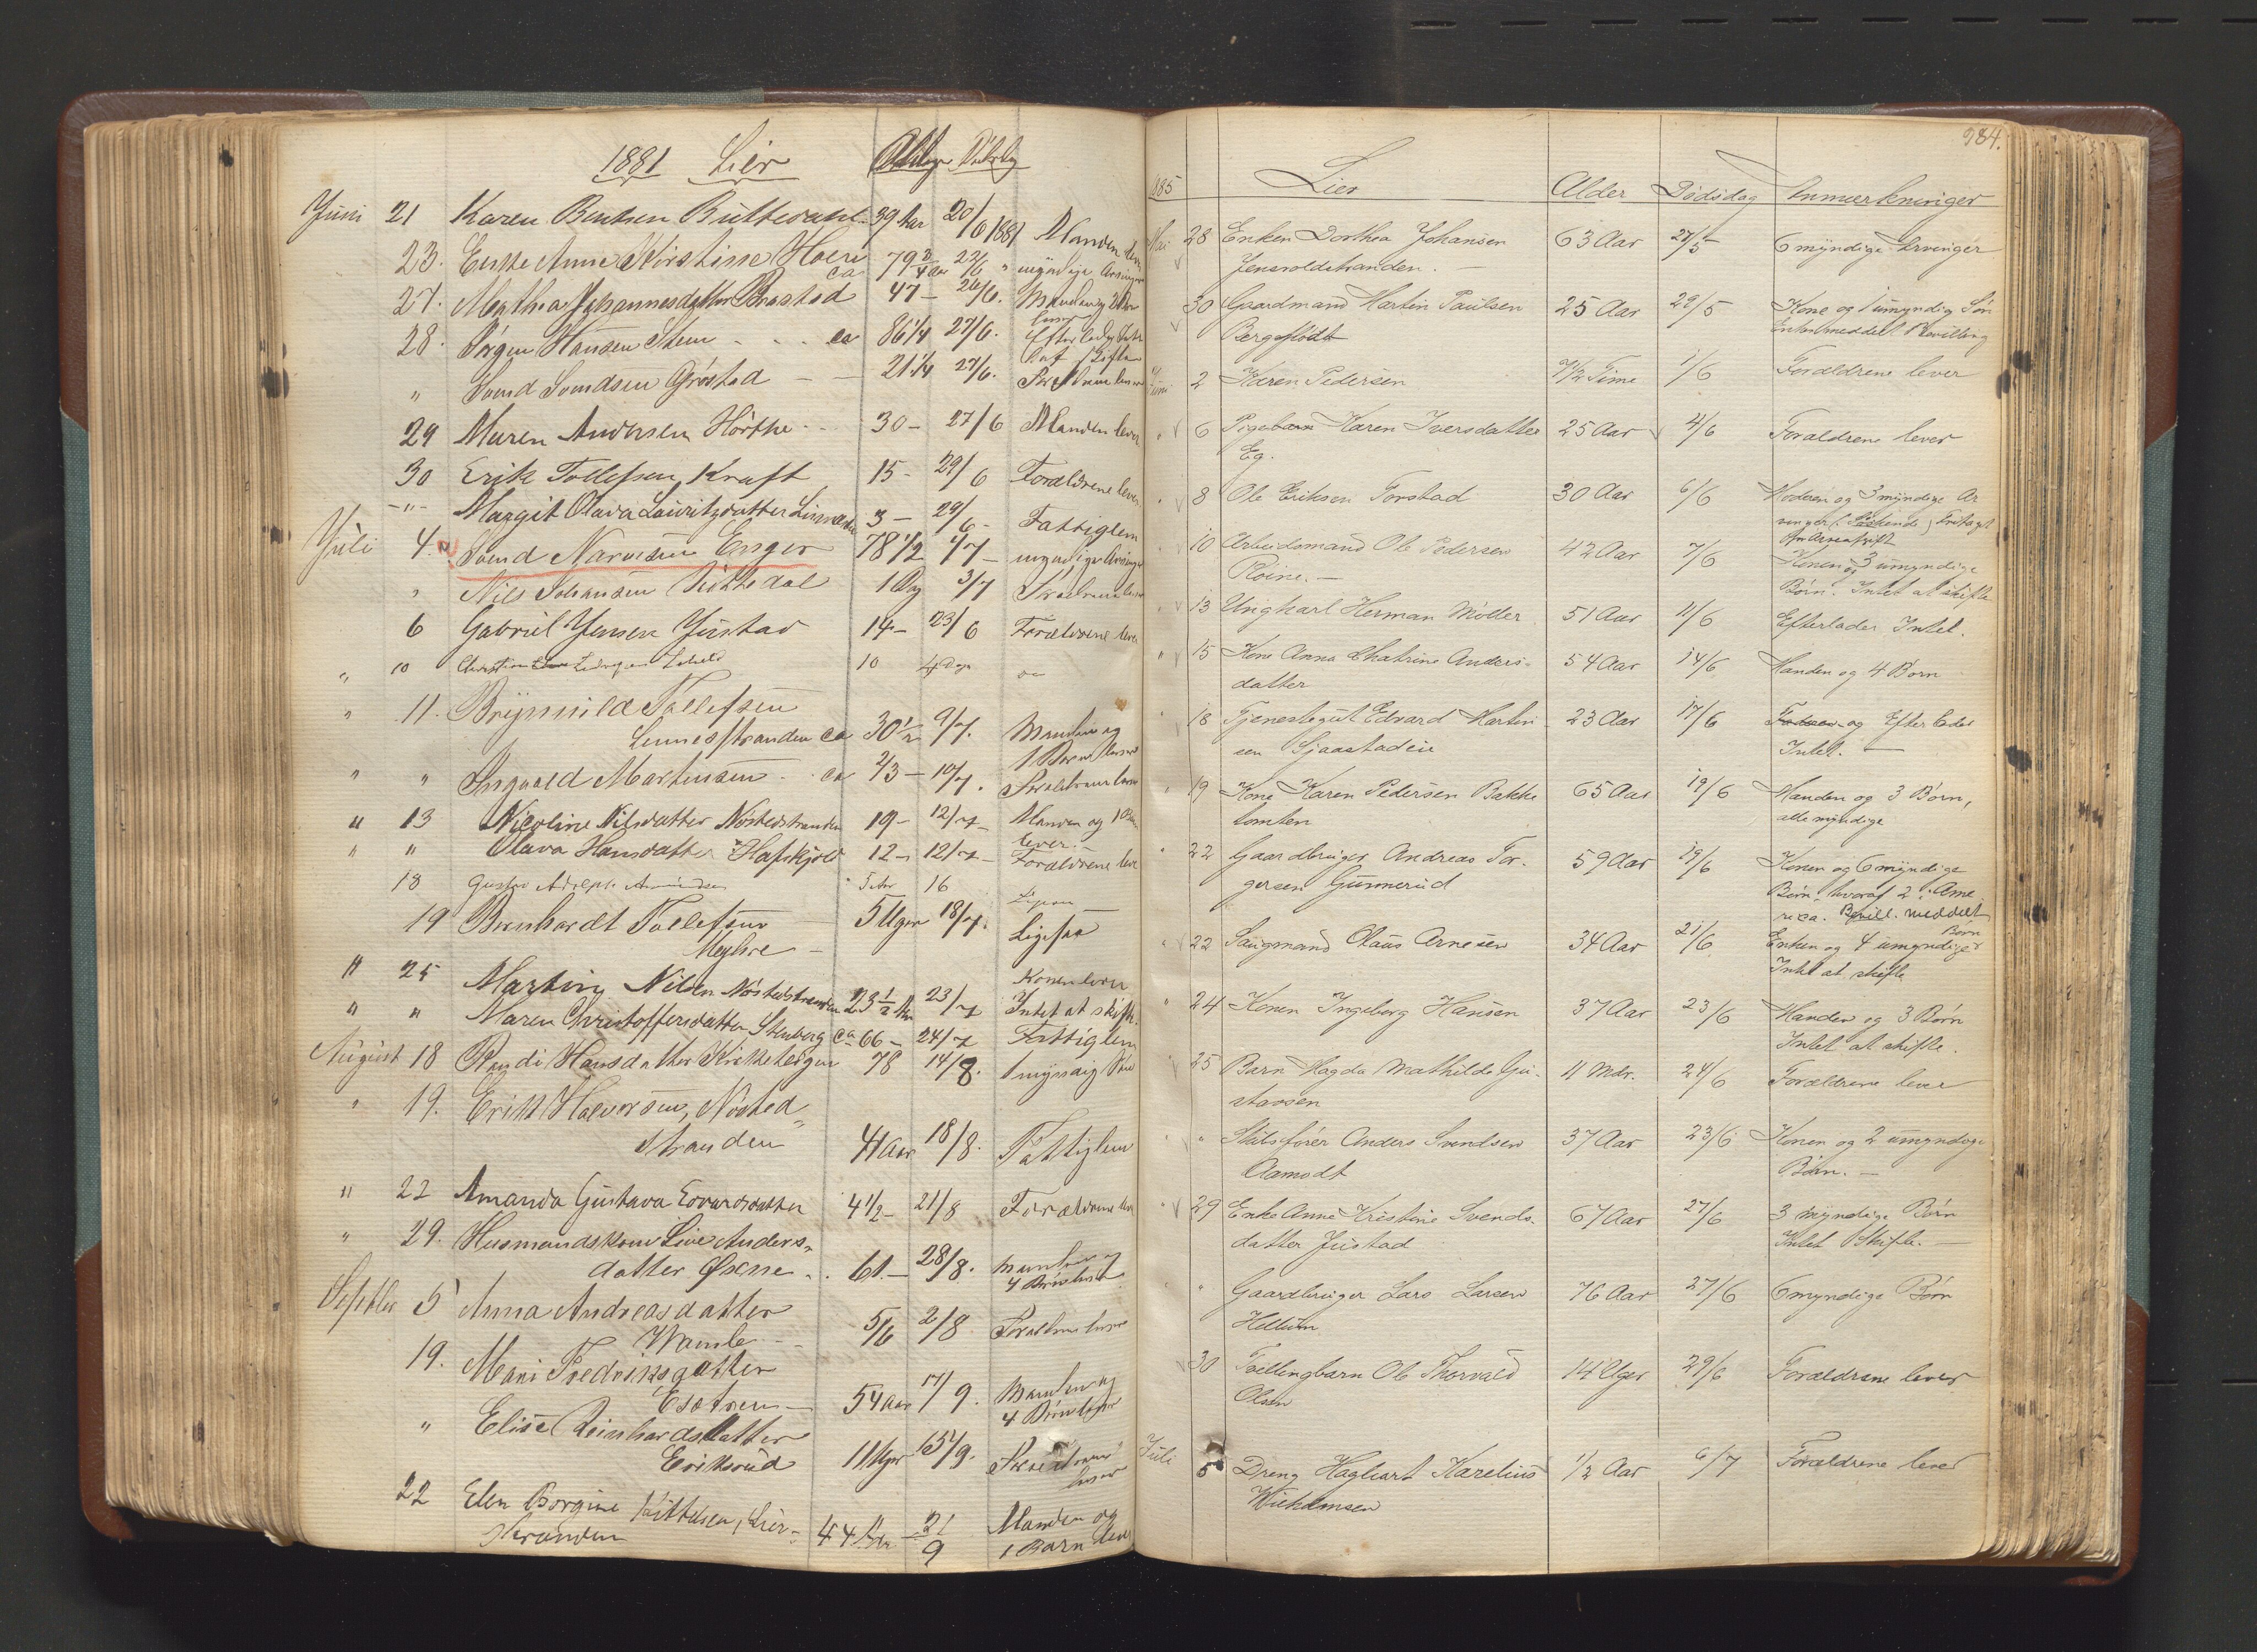 1881 Lier
Juni 21 Karen Bentsen 39 Aar 20/6 1881 Manden lever
23. Enke Anne Kirstine Hoen 79 3/4 Aar 22/6 myndige Arvinger
27. Marthea Johannesdatter Brastad ca 47 - 26/6. Manden og
lever
28. Jørgen Hansen Stein ca 86 1/4 27/6. Efterlod
at skifte
" Svend Svendsen Grøstad 21 1/4 27/6. Forældrene lever
29 Maren Andersen Hørthe 30 - 27/6 Manden lever
30 Erik Tollefsen Kraft 15 - 29/6 Forældrene lever
-"- Margit Olava Lauritzdatter 3 - 29/6 - Fattiglem
Juli 4. Svend Narvesen Enger 78 1/2 1/7 - myndige Arvinger
" Nils Johansen 1 Dag 3/7 Forældrene lever
6 Gabriel Jensen Justad 14 - 23/6 Forældrene lever
" 10 Christian 10 4 Dage
" 11. Brynhild Tollefsen
Linnesstranden ca 30 1/2 9/7. Manden og
1 Barn lever
" " Ingvald Martinsen ca 2/3 - 10/7. Forældrene lever
" 13 Nicoline Nilsdatter Nøstedstranden 19 - 12/7 - Manden og 1 Barn
lever.
" " Olava Hansdatter Hafskjold 12 - 12/7 - Forældrene lever
18 Gustav Adolph Amundsen 5 Aar 16
19 Bernhardt Tollefsen 5 Uger 18/7. Ligesaa
Meghre -
" 25 Martin Nilsen Nøstedstranden 23 1/2 Aar 23/7 Konen lever
Intet at skifte.
" " Maren Christoffersdatter Stenberg ca 66 - 24/7 Fattiglem
August 18 Randi Hansdatter Kirkebergen 78 14/8. 1 myndig
" 19. Erik Halvorsen, Nøsted-
stranden 41 Aar 18/8. Fattiglem
" 22 Amanda Gustava Edvardsdatter 4 1/2 - 21/8 Forældrene lever
" 29. Husmandskone Live Anders-
datter Øxne 61. - 28/8. Manden og
4 Børn lever
Septbr 5 Anna Andreasdatter
5/6 2/8 Forældrene lever
19. Mari Fredriksdatter
54 Aar 17/9. Manden og
4 Børn lever
" Elise Reinhardsdatter
Eriksrud 11 Uger 15/9. Forældrene
lever
22 Elen Borgine Kittelsen, Lier-
stranden 44 Aar 21/9 Manden og
1 Barn lever
284.
1885 Lier Alder Dødsdag Anmærkninger
Mai 28 Enken Dorthea Johansen 63 Aar 27/5 6 myndige Arvinger
30 Gaardmand Martin Paulsen 25 Aar 29/5 Kone og 1 umyndig Søn
Bergsflødt Enken meddelt Bevilling
Juni 2 Karen Pedersen 7 1/2 Time 1/6 Forældrene lever
" 6 Pigebarn Karen Iversdatter 25 Aar 4/6 Forældrene lever
Eg.
" 8 Ole Eriksen Torstad 30 Aar 6/6 Moderen og 3 myndige Ar
vinger
" 10 Arbeidsmand Ole Pedersen 42 Aar 7/6 Konen og 3 umyndige
Børn. Intet at skifte
" 13 Ungkarl Herman Møller 51 Aar 11/6 Efterlader Intet.
" 15 Kone Anna Chatrine Anders- 54 Aar 14/6 Manden og 4 Børn
datter
" 18 Tjenestegut Edvard Martin- 23 Aar 17/6 og Efterlader
sen Sjaastadeie Intet. -
" 19 Kone Karen Pedersen Bakke 65 Aar 19/6 Manden og 3 Børn,
tomten alle myndige
" 22 Gaardbruger Andreas Tor- 59 Aar 19/6 Konen og 6 myndige
gersen Gunnerud Børn, hvoraf 2 i Ame
rika. Bevill. meddelt
" 22 Saugmand Olaus Arnesen 34 Aar 21/6 Enken og 4 umyndige Børn
Intet at skifte
" 24 Konen Ingeborg Hansen 37 Aar 23/6 Manden og 3 Børn
Intet at skifte.
" 25 Barn Magda Mathilde Gu- 11 Mdr. 24/6 Forældrene lever
stavsen
" " Skudsfører Anders Svendsen 37 Aar 23/6 Konen og 2 umyndige
Aamodt Børn. -
" 29 Enke Anne Kristine Svends- 67 Aar 27/6 3 myndige Børn
datter Justad Intet Skifte. -
" " Gaardbruger Lars Larsen 76 Aar 27/6 6 myndige Børn
Hellum
30 Tvillingbarn Ole Thorvald 14 Uger 29/6 Forældrene lever
Olsen
Juli 6 Dreng Hagbart Karelius 1/2 Aar 6/7 Forældrene lever
Wilhelmsen